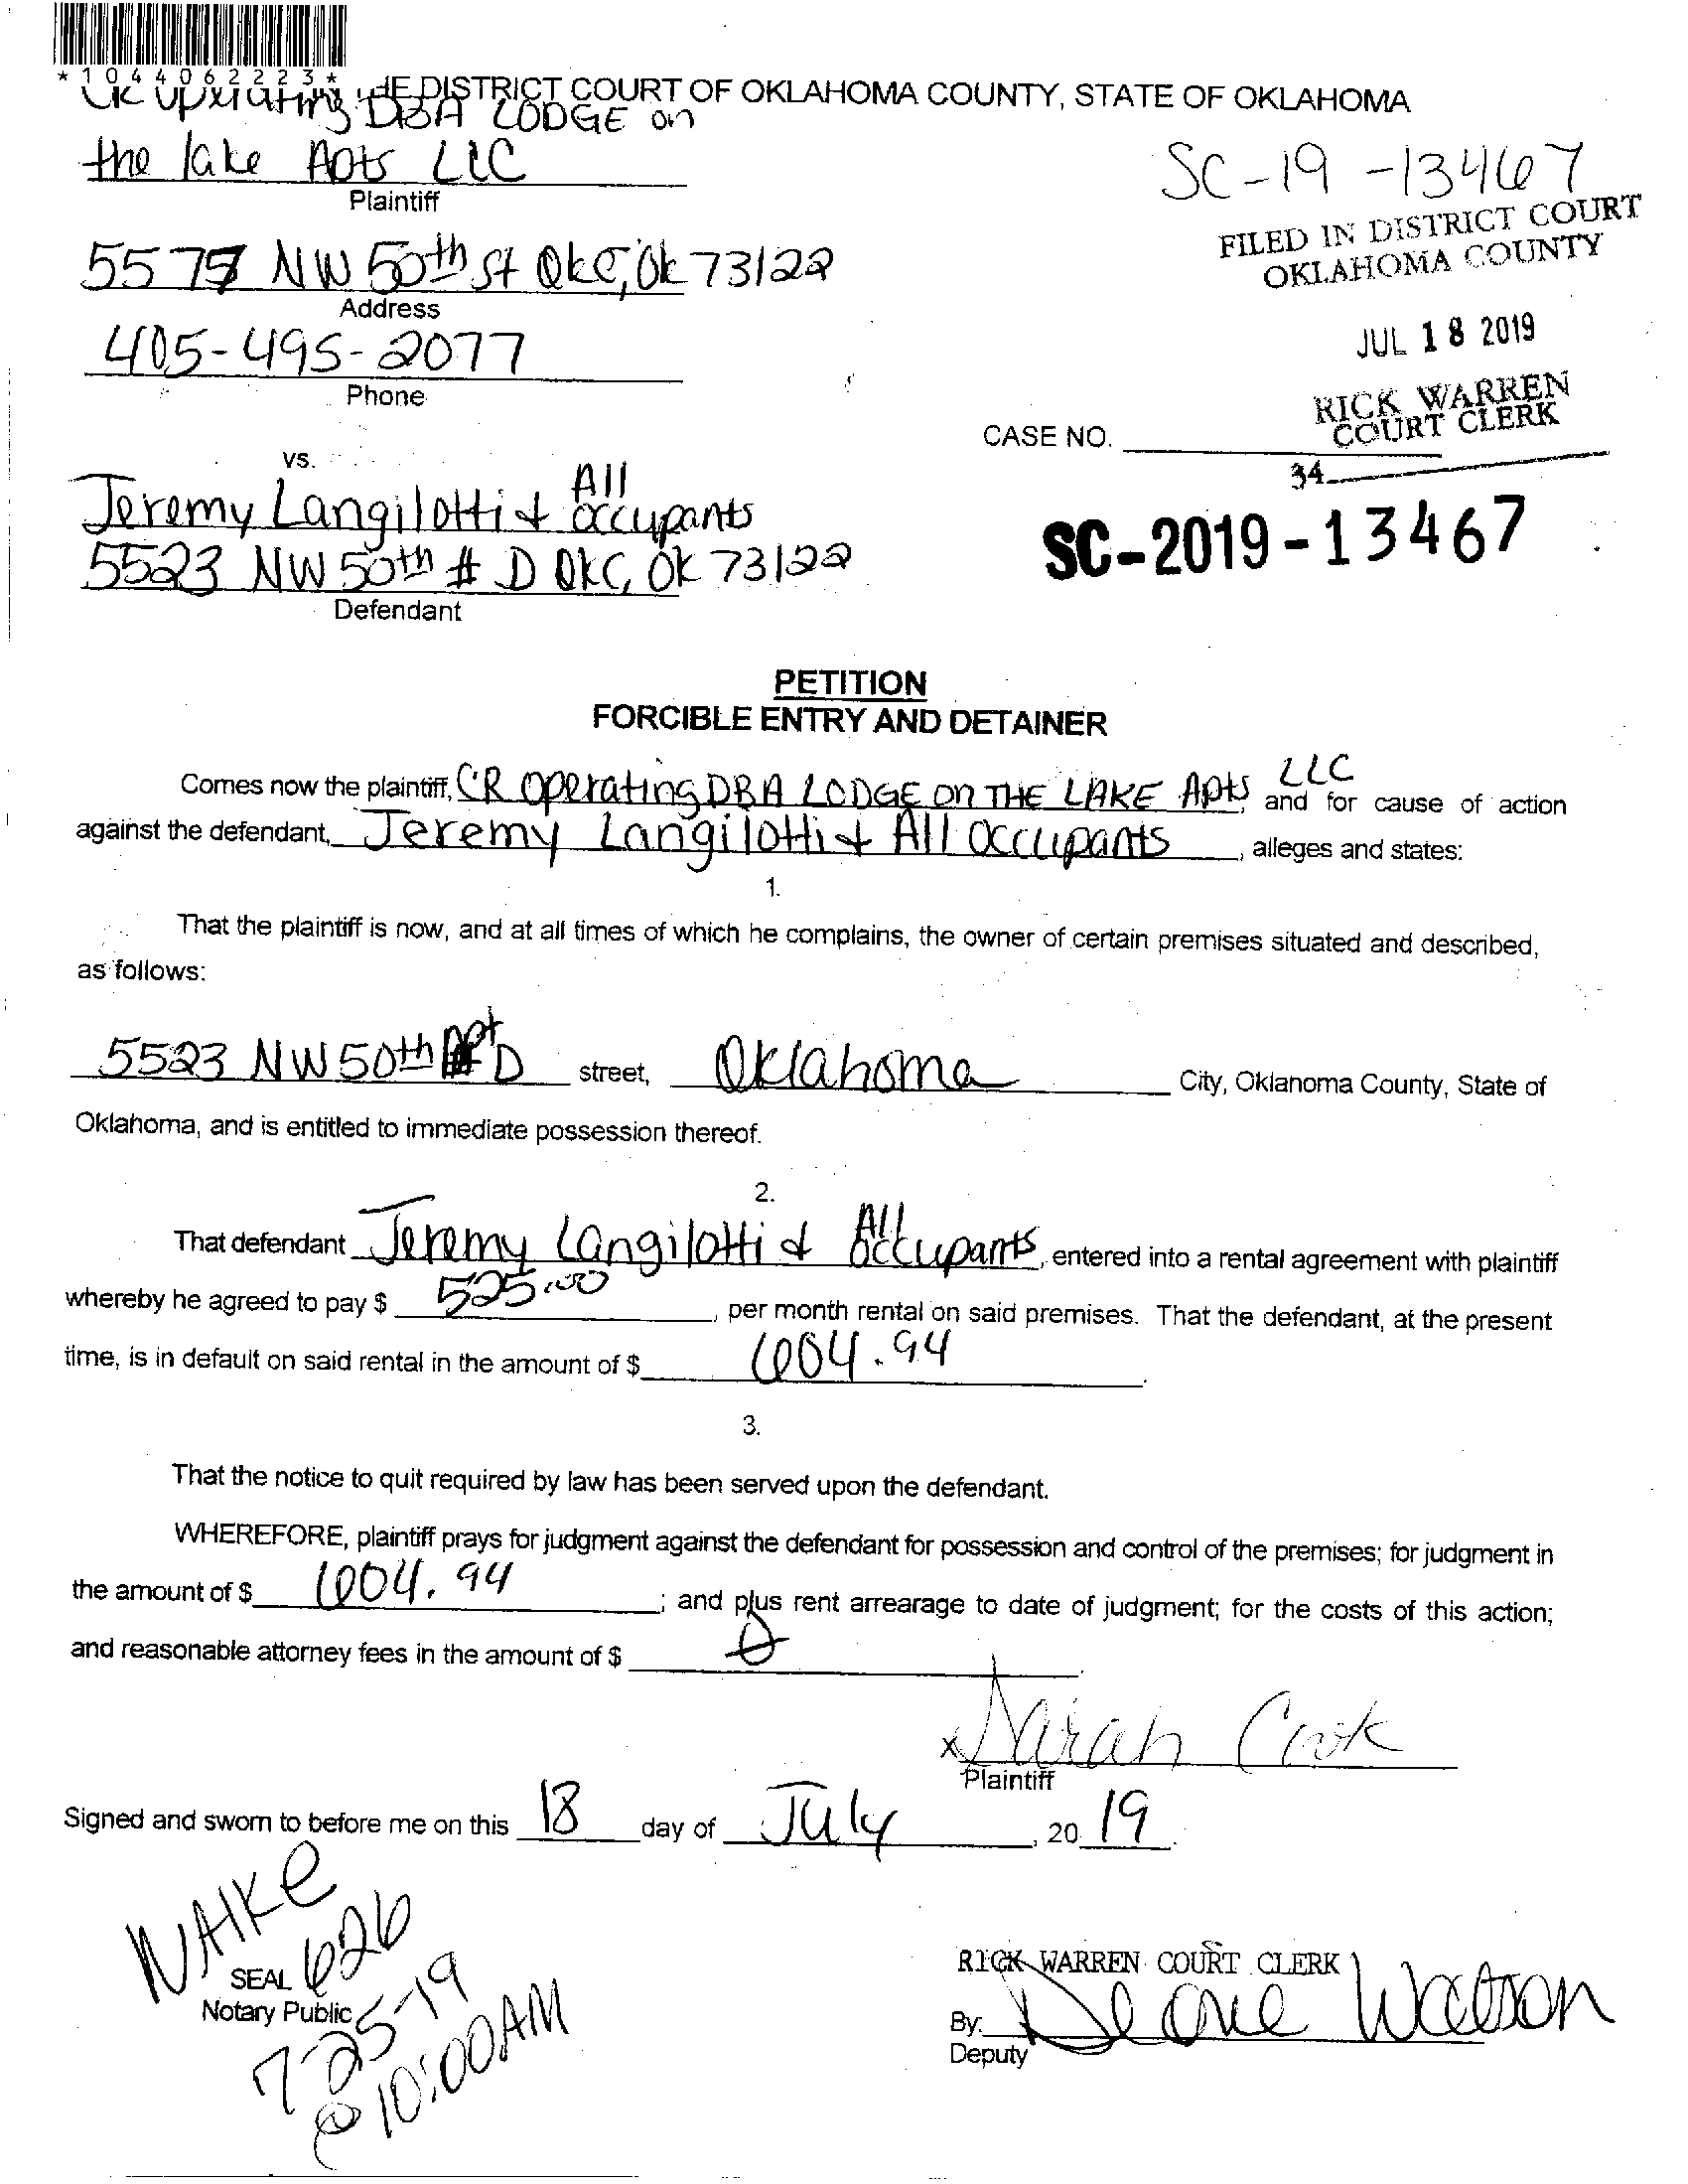 *1044062223*
DISTRICT COURT OF OKLAHOMA COUNTY, STATE OF OKLAHOMA
CR Operating DBA LODGE on
the lake Apts LLC
Plaintiff
SC-19-13467
FILED IN DISTRICT COURT
OKLAHOMA COUNTY
NW 50th St OkC, Ok 73122
Address
JUL 18 2019
405-495-2077
Phone
RICK WARREN
COURT CLERK
CASE NO.
34
vs.
Jeremy Langilotti & All occupants
5523 NW 50th # D OKC, OK 73122
Defendant
SC-2019-13467
PETITION
FORCIBLE ENTRY AND DETAINER
Comes now the plaintiff, CR Operating DBA LODGE on THE LAKE Apts LLC, and for cause of action
against the defendant, Jeremy Langilotti & All occupants, alleges and states:
1.
That the plaintiff is now, and at all times of which he complains, the owner of certain premises situated and described,
as follows:
5523 NW 50th Apt D street, Oklahoma City, Oklahoma County, State of
Oklahoma, and is entitled to immediate possession thereof.
2.
That defendant Jeremy Langilotti & All occupants, entered into a rental agreement with plaintiff
whereby he agreed to pay $ 525.00, per month rental on said premises. That the defendant, at the present
time, is in default on said rental in the amount of $ 604.94.
3.
That the notice to quit required by law has been served upon the defendant.
WHEREFORE, plaintiff prays for judgment against the defendant for possession and control of the premises; for judgment in
the amount of $ 604.94; and plus rent arrearage to date of judgment; for the costs of this action;
and reasonable attorney fees in the amount of $ 0.
x Sarah Cook
Plaintiff
Signed and sworn to before me on this 18 day of July, 2019.
WAIKE
626
SEAL
Notary Public
7-25-19
@ 10:00AM
RICK WARREN COURT CLERK
By: Watson
Deputy